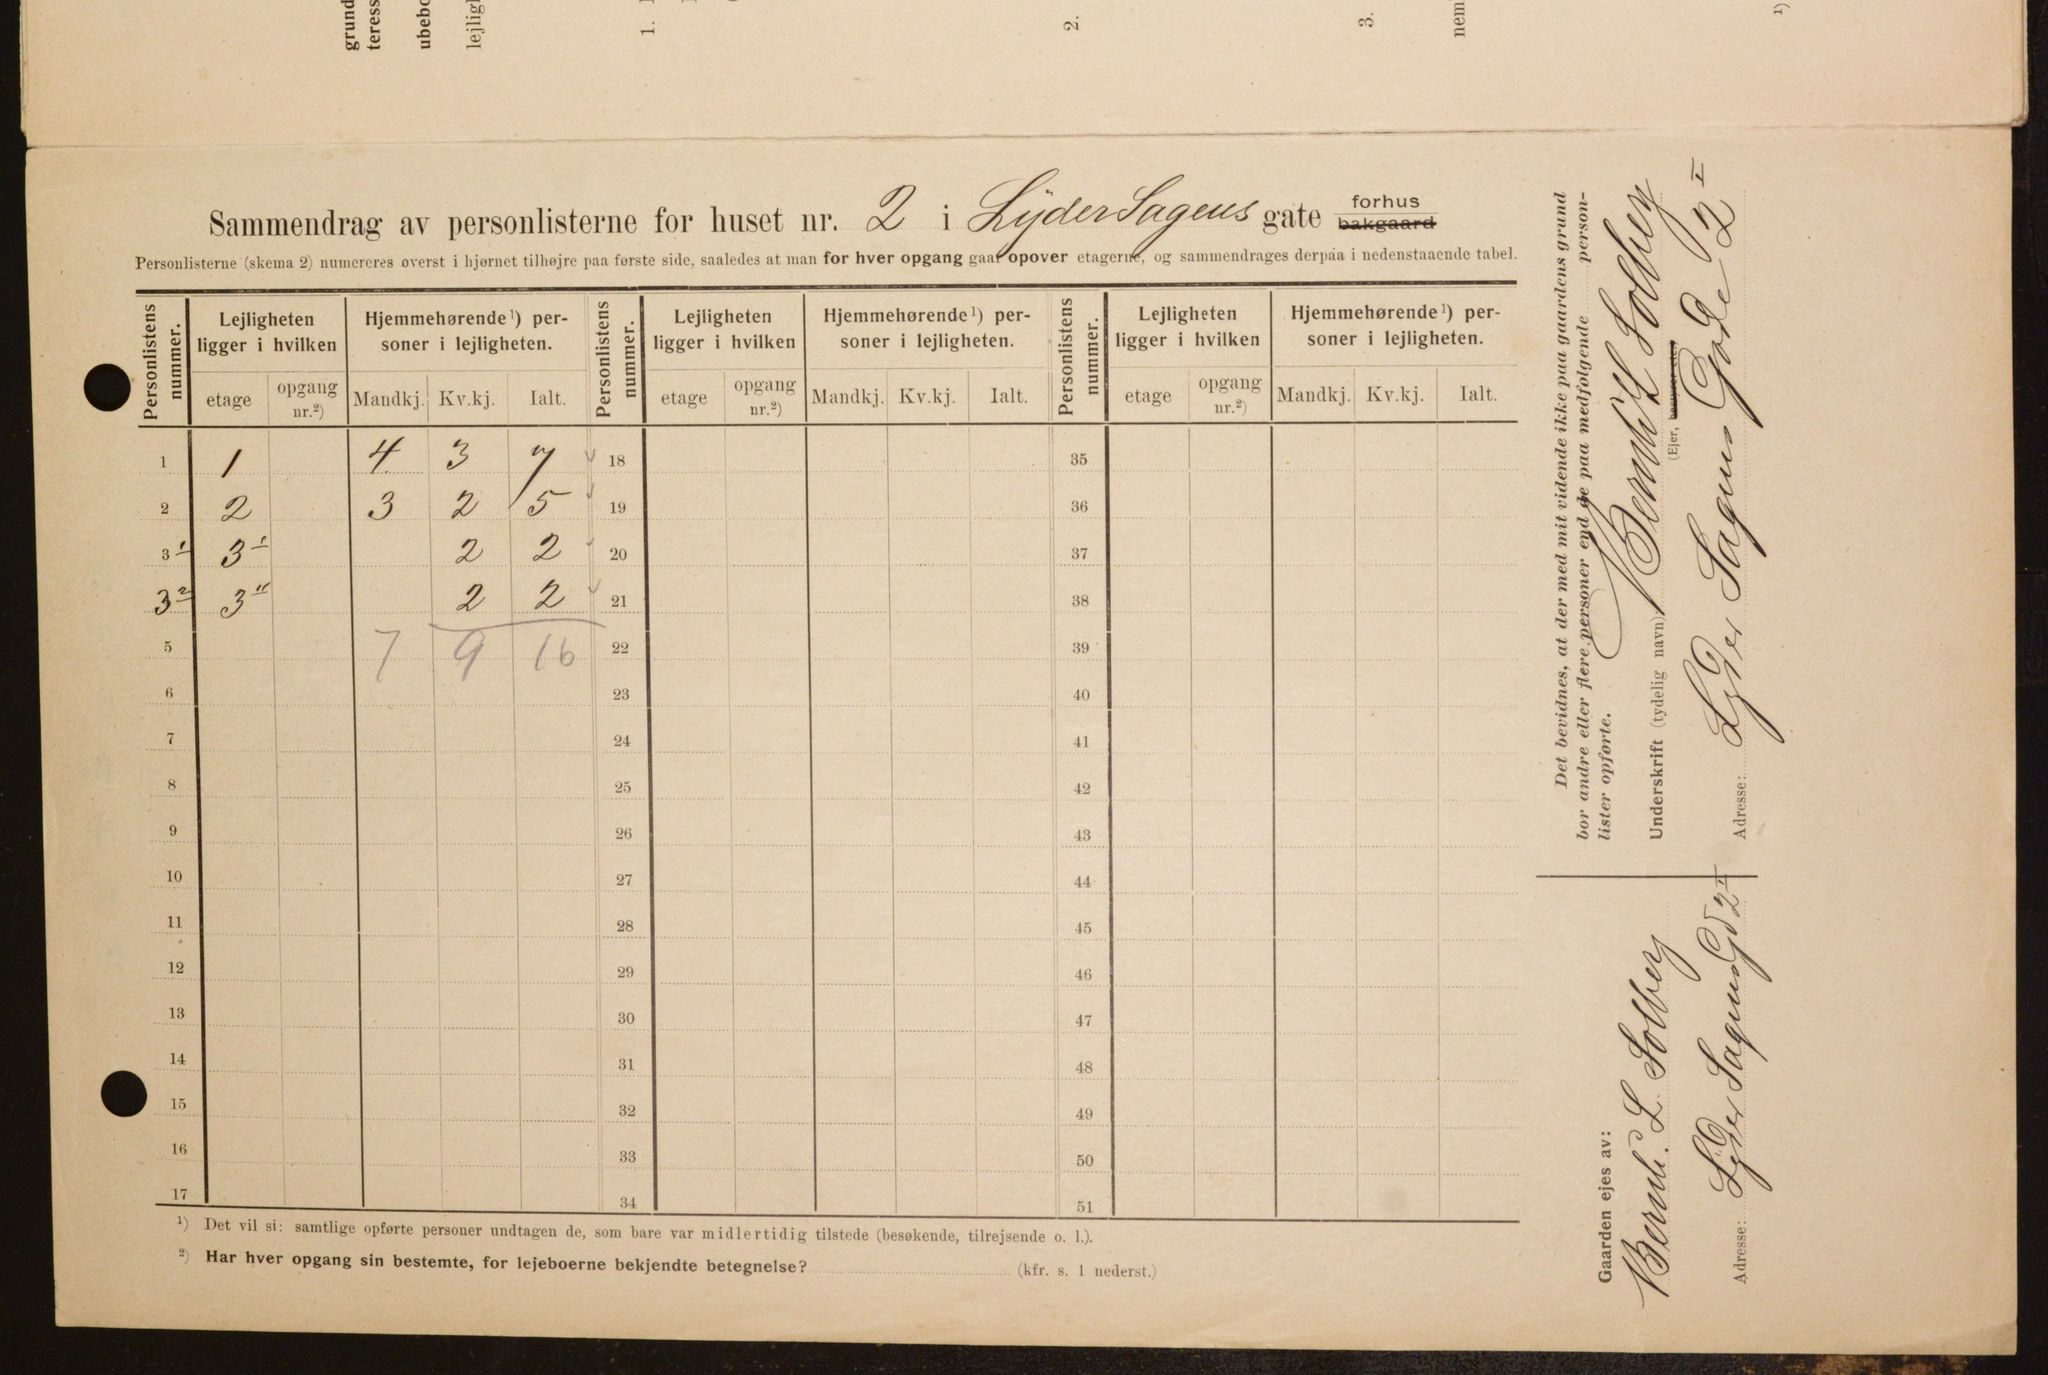 grund
teress
ubebo
lejligh
1.
2.
3.
nem
1)
Sammendrag av personlisterne for huset nr. 2 i Lyder Sagens gate forhus bakgaard
Personlisterne (skema 2) numereres øverst i hjørnet tilhøjre paa første side, saaledes at man for hver opgang gaar opover etagerne, og sammendrages derpaa i nedenstaaende tabel.
Personlistens nummer. Lejligheten ligger i hvilken Hjemmehørende 1) personer i lejligheten. Personlistens nummer. Lejligheten ligger i hvilken Hjemmehørende 1) personer i lejligheten. Personlistens nummer. Lejligheten ligger i hvilken Hjemmehørende 1) personer i lejligheten.
etage opgang nr. 2) Mandkj. Kv.kj. Ialt. etage opgang nr. 2) Mandkj. Kv.kj. Ialt. etage opgang nr. 2) Mandkj. Kv.kj. Ialt.
1 1 4 3 7 18 35
2 2 3 2 5 19 36
3 1 3 I 2 2 20 37
3 2 3 II 2 2 21 38
5 7 9 16 22 39
6 23 40
7 24 41
8 25 42
9 26 43
10 27 44
11 28 45
12 29 46
13 30 47
14 31 48
15 32 49
16 33 50
17 34 51
1) Det vil si: samtlige opførte personer undtagen de, som bare var midlertidig tilstede (besøkende, tilrejsende o. l.).
2) Har hver opgang sin bestemte, for lejeboerne bekjendte betegnelse? (kfr. s. 1 nederst.)
Det bevidnes, at der med mit vidende ikke paa gaardens grund
bor andre eller flere personer end de paa medfølgende personlister opførte.
Underskrift (tydelig navn) Bernh. L Solberg
(Ejer,
Adresse: Lyder Sagens Gade 2 I
Gaarden ejes av:
Bernh. L Solberg
Adresse: Lyder Sagensgd 2 I